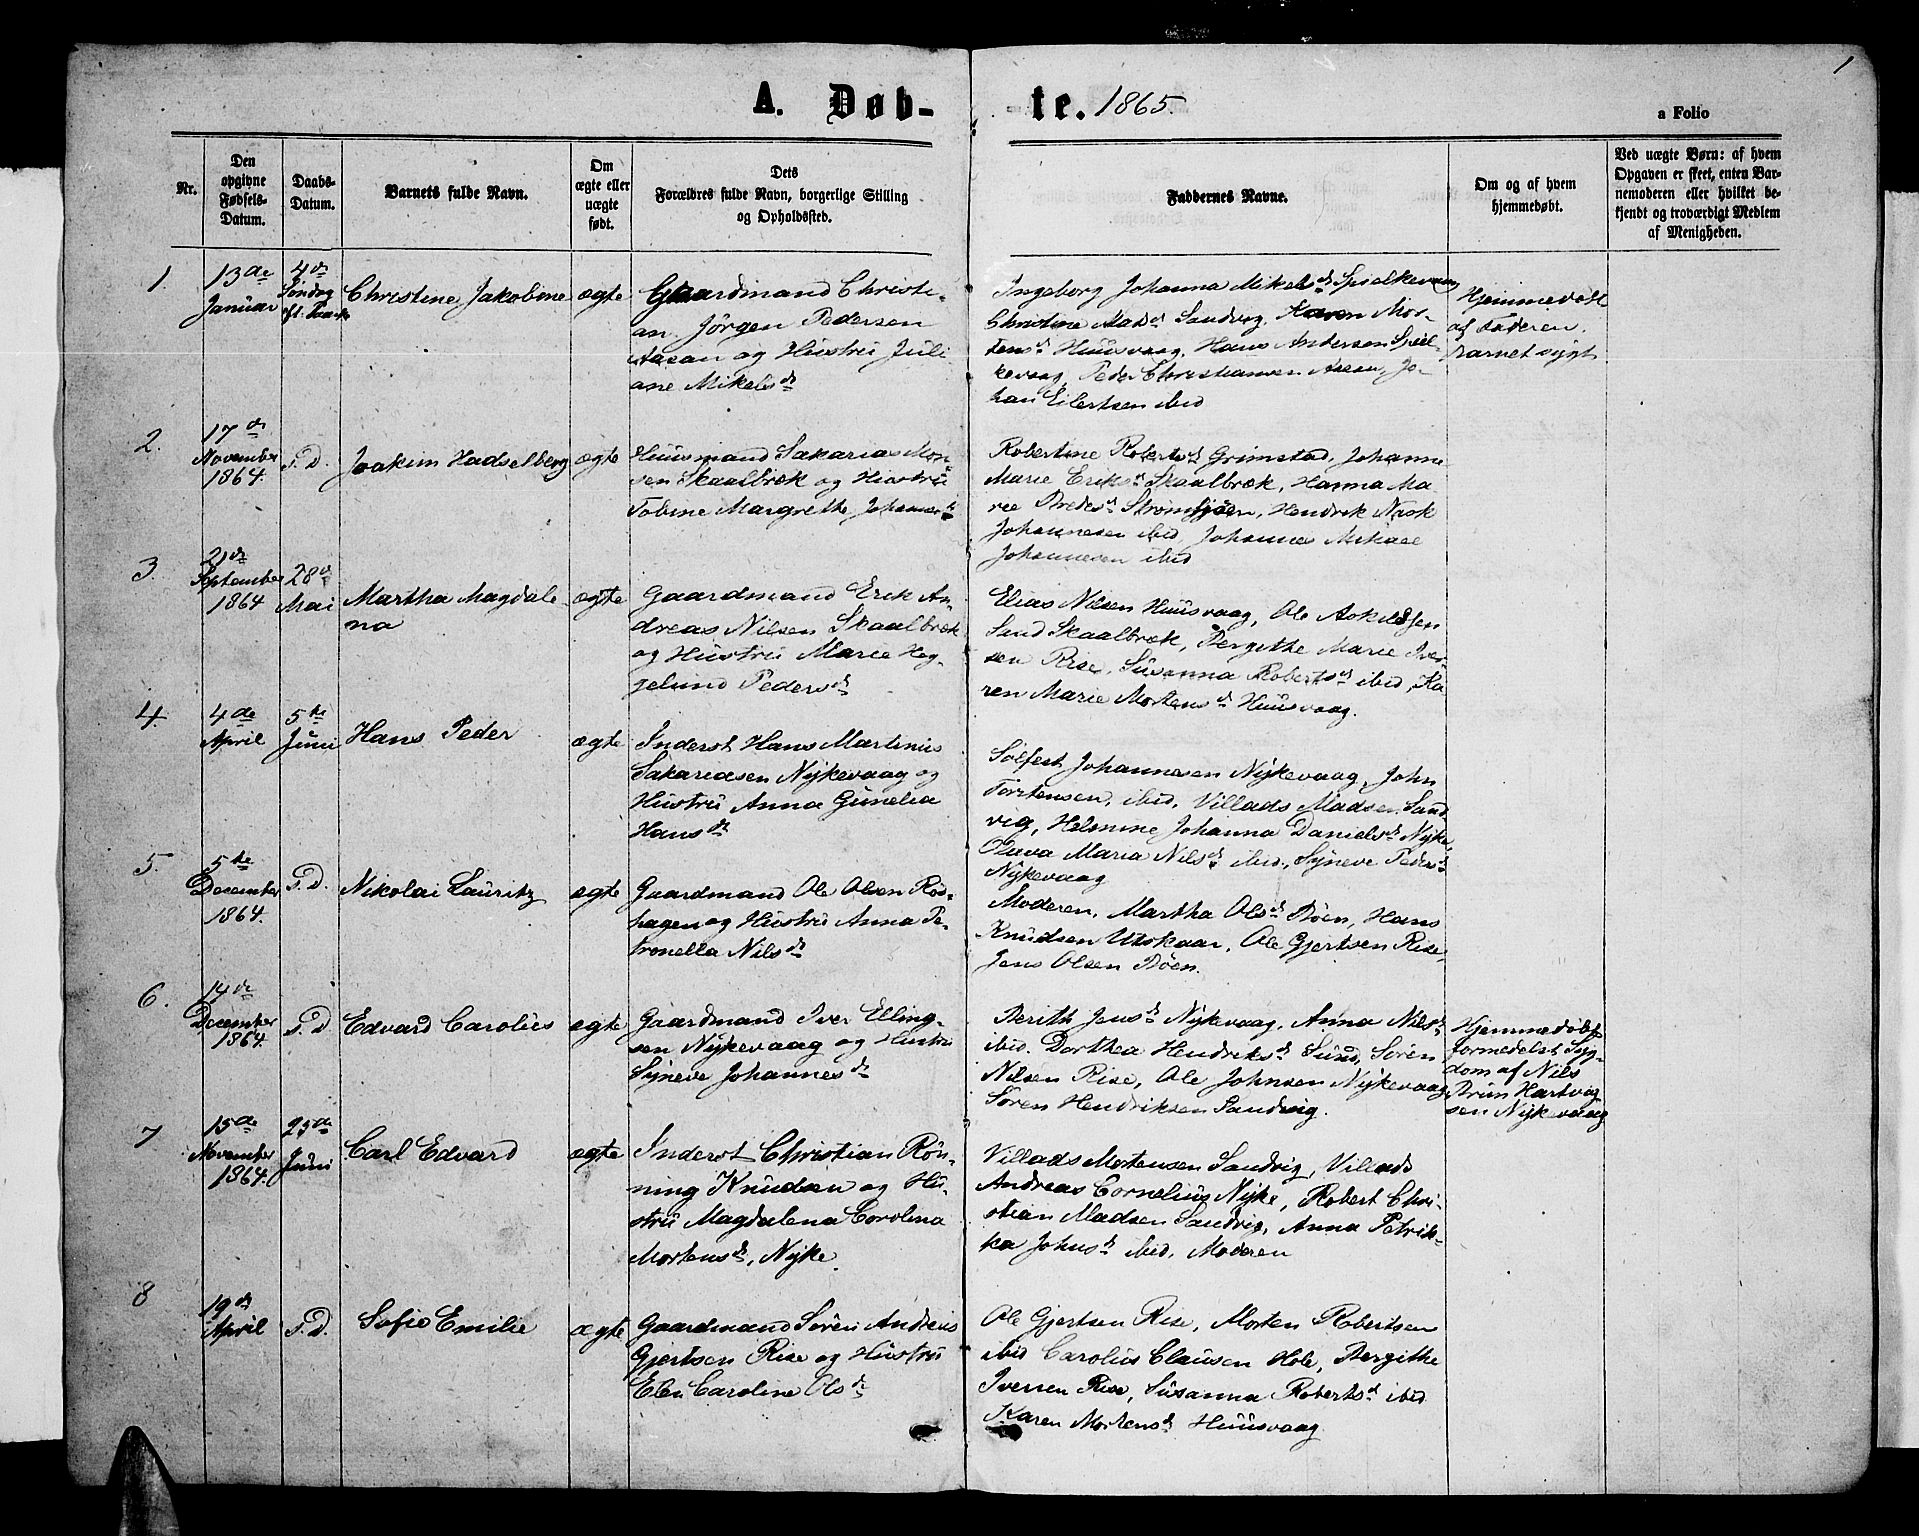 1
A. Døb-
te. 1865.
a Folio
Nr.
Den
opgivne
Fødsels-
Datum.
Daabs-
Datum.
Barnets fulde Navn.
Om
ægte eller
uægte
født.
Dets
Forældres fulde Navn, borgerlige Stilling
og Opholdssted.
Faddernes Navne.
Om og af hvem
hjemmedøbt.
Ved uægte Børn: af hvem
Opgaven er skeet, enten Bar-
nemoderen eller hvilket be-
kjendt og troværdigt Medlem
af Menigheden.
1
13de
Januar
4de
Søndag
ef. Paaske
Christine Jakobine
ægte
Gaardmand Christi-
an Jörgen Pedersen
Aasan og Hustru Juli
ane Mikelsdr
Ingeborg Johanna Mikelsdr Spielkevaag
Christine Madsdr Sandvig, Karen Mor-
tensdr Huusvaag, Hans Andersen Spiel-
kevaag, Peder Christiansen Aasan, Jo-
han Eilertsen ibid
Hjemmedöbt
af Faderen.
Barnet sygt
2.
17de
November
1864.
s. D.
Joakim Hadselberg
ægte
Huusmand Sakarias Mon-
sen Skaalbræk og Hustru
Tobine Margrethe Johannesdr
Robertine Robertsdr Grimstad, Johanna
Marie Eriksdr Skaalbræk, Hanna Ma-
rie Predesdr Strömfjören, Hendrik Nask
Johannesen ibid, Johannes Mikael
Johannesen ibid
3.
21de
September
1864
28de
Mai
Martha Magdale-
na
ægte
Gaardmand Erik An-
dreas Nilsen Skaalbræk
og Hustru Marie Heg-
gelund Pedersdr
Elias Nilsen Huusvaag, Ole Askildsen
Sand Skaalbræk, Bergithe Marie Iver-
sen Rise, Susanna Robertsdr ibid, Ka
ren Marie Mortensdr Huusvaag.
4.
4de
April
5te
Juni
Hans Peder
ægte
Inderst Hans Martinus
Sakariasen Nykevaag og
Hustru Anna Gunelia
Hansdr
Solfest Johannesen Nykevaag, John
Torstensen, ibid, Villads Madsen Sand
vig, Helmine Johanna Danielsdr Nyke,
Oluva Maria Nilsdr ibid, Syneve Pedersdr
Nykevaag
5.
5te
December
1864.
s. D.
Nikolai Lauritz
ægte
Gaardmand Ole Olsen Röd-
hagen og Hustru Anna Pe-
tronella Nilsdr
Moderen, Martha Olsdr Böen, Hans
Knudsen Utskaar, Ole Gjertsen Rise,
Jens Olsen Böen.
6.
14de
December
1864.
s. D
Edvard Carolius
ægte
Gaardmand Iver Elling-
sen Nykevaag og Hustru
Syneve Johannesdr
Berith Jensdr Nykevaag, Anna Nilsdr
ibid. Dorthea Hendriksdr Sund, Sören
Nilsen Rise, Ole Johnsen Nykevaag
Sören Hendriksen Sandvig.
Hjemmedöbt
formedelst Syg-
dom af Nils
Brun Hartvig
sen Nykevaag
7
15de
November
1864.
25de
Juni
Carl Edvard
ægte
Inderst Christian Rön-
ning Knudsen og Hu-
stru Magdalena Carolina
Mortensdr, Nyke.
Villads Mortensen Sandvig, Villads
Andreas Cornelius Nyke, Robert Chri-
stian Madsen Sandvig, Anna Petrik-
ka Johnsdr ibid, Moderen
8
19de
April
s. D.
Sofie Emilie
ægte
Gaardmand Sören Andreas
Gjertsen Rise og Hustru
Elen Caroline Olsdr
Ole Gjertsen Rise, Morten Robertsen
ibid Carolius Clausen Hole, Bergithe
Iversen Rise, Susanna Robertsdr ibid
Karen Mortensdr Huusvaag.